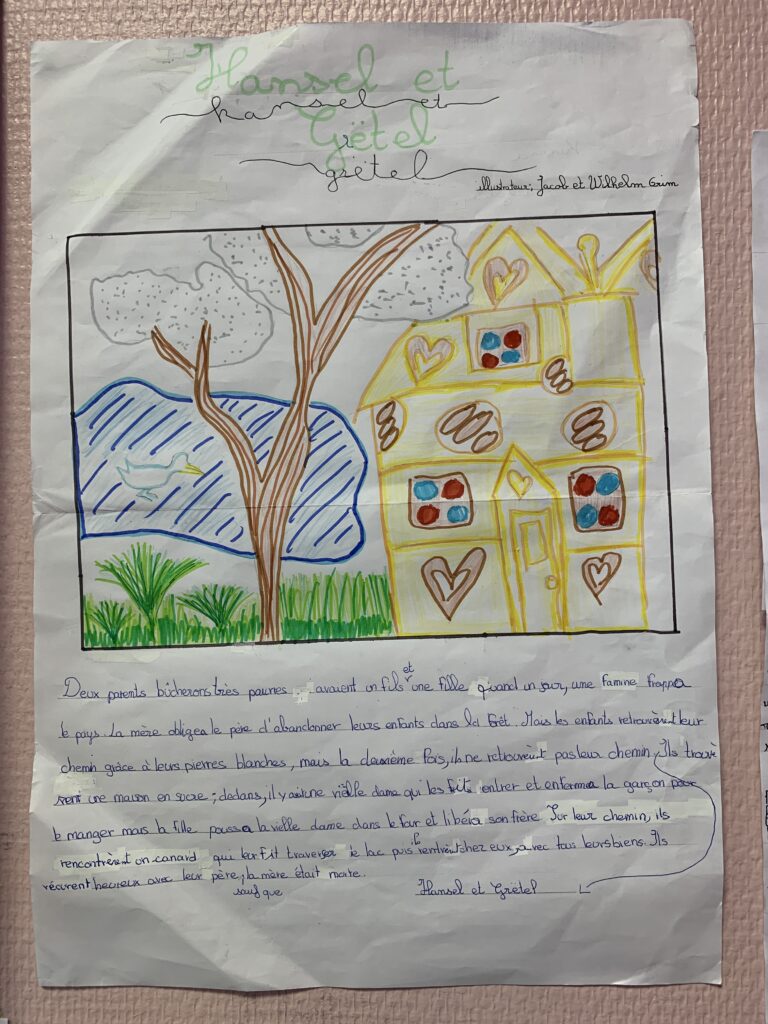 Hansel et
hansel et
Grëtel
grëtel
illustrateur; Jacob et Wilhelm Grim
Deux parents bûcherons très pauvres avaient un fils et une fille quand un jour, une famine frappa
le pays. La mère obligea le père d'abandonner leurs enfants dans la forêt. Mais les enfants retrouvèrent leur
chemin grâce à leurs pierres blanches, mais la deuxième fois, ils ne retrouvèrent pas leur chemin. Ils trouvè
rent une maison en sucre; dedans, il y avait une vieille dame qui les fit entrer et enferma le garçon pour
le manger mais la fille poussa la vielle dame dans le four et libéra son frère Sur leur chemin, ils
rencontrèrent un canard qui leur fit traverser le lac puis ils rentrèrent chez eux, avec tous leurs biens. Ils
vécurent heureux avec leur père, la mère était morte.
sauf que
Hansel et Grëtel